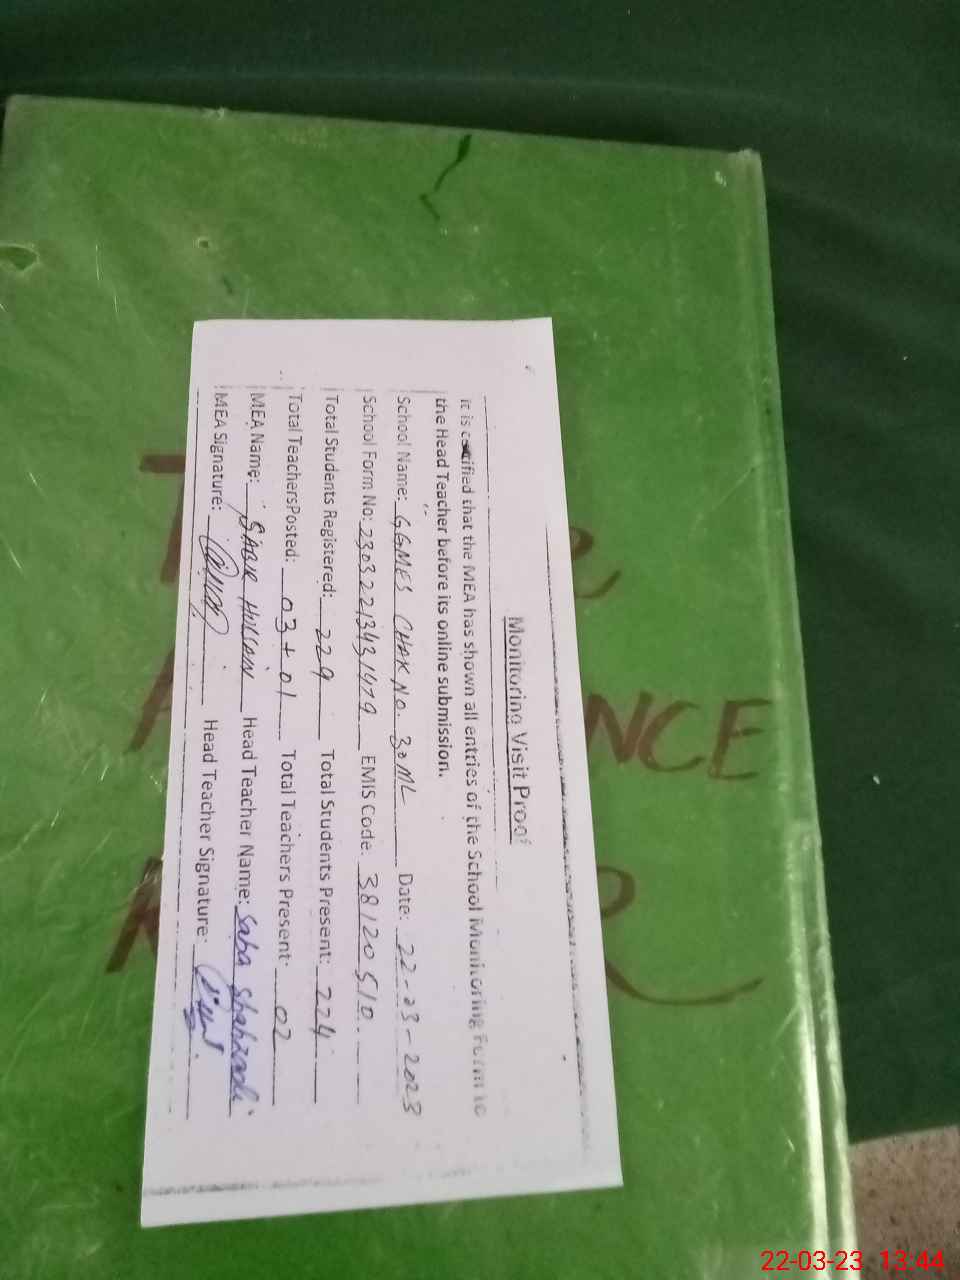 Monitoring Visit Proof
It is certified that the MEA has shown all entries of the School Monitoring Form to
the Head Teacher before its online submission.
School Name: GGMES CHAK NO. 30 ML Date: 22-03-2023
School Form No: 2303221343,1479 EMIS Code: 38120510
Total Students Registered: 229 Total Students Present: 224
Total TeachersPosted: 03+01 Total Teachers Present: 02
MEA Name: SABIR HUSSAIN Head Teacher Name: Saba Shahzadi
MEA Signature: Head Teacher Signature:
NCE
R
22-03-23 13:44